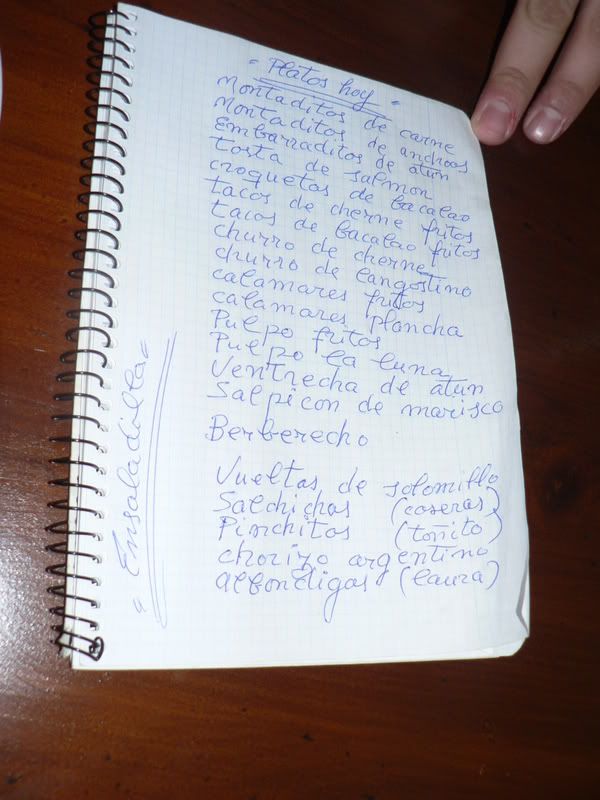 "Platos hoy"
Montaditos de carne
Montaditos de anchoas
Embarraditos de atun
Tosta de salmon
croquetas de bacalao
tacos de cherne fritos
tacos de bacalao fritos
churro de cherne
churro de langostino
calamares fritos
calamares plancha
Pulpo fritos
Pulpo la luna
Ventrecha de atun
Salpicon de marisco
Berberecho
Vueltas de solomillo
Salchichas (caseras)
Pinchitos (toñito)
chorizo argentino
albondigas (laura)
"Ensaladilla"